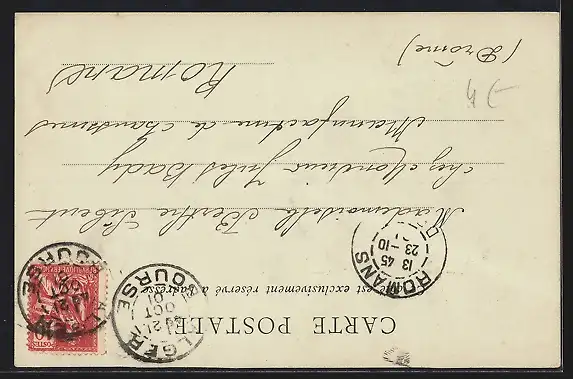 CARTE POSTALE
Ce côté est exclusivement réservé à l'adresse
Mademoiselle Berthe Sibeut
chez Monsieur Jules Bady
Manufacture de chaussures
Romans
(Drôme)
ALGER BOURSE
21 OCT 01
ROMANS
13 45
23 -10
POSTES
10